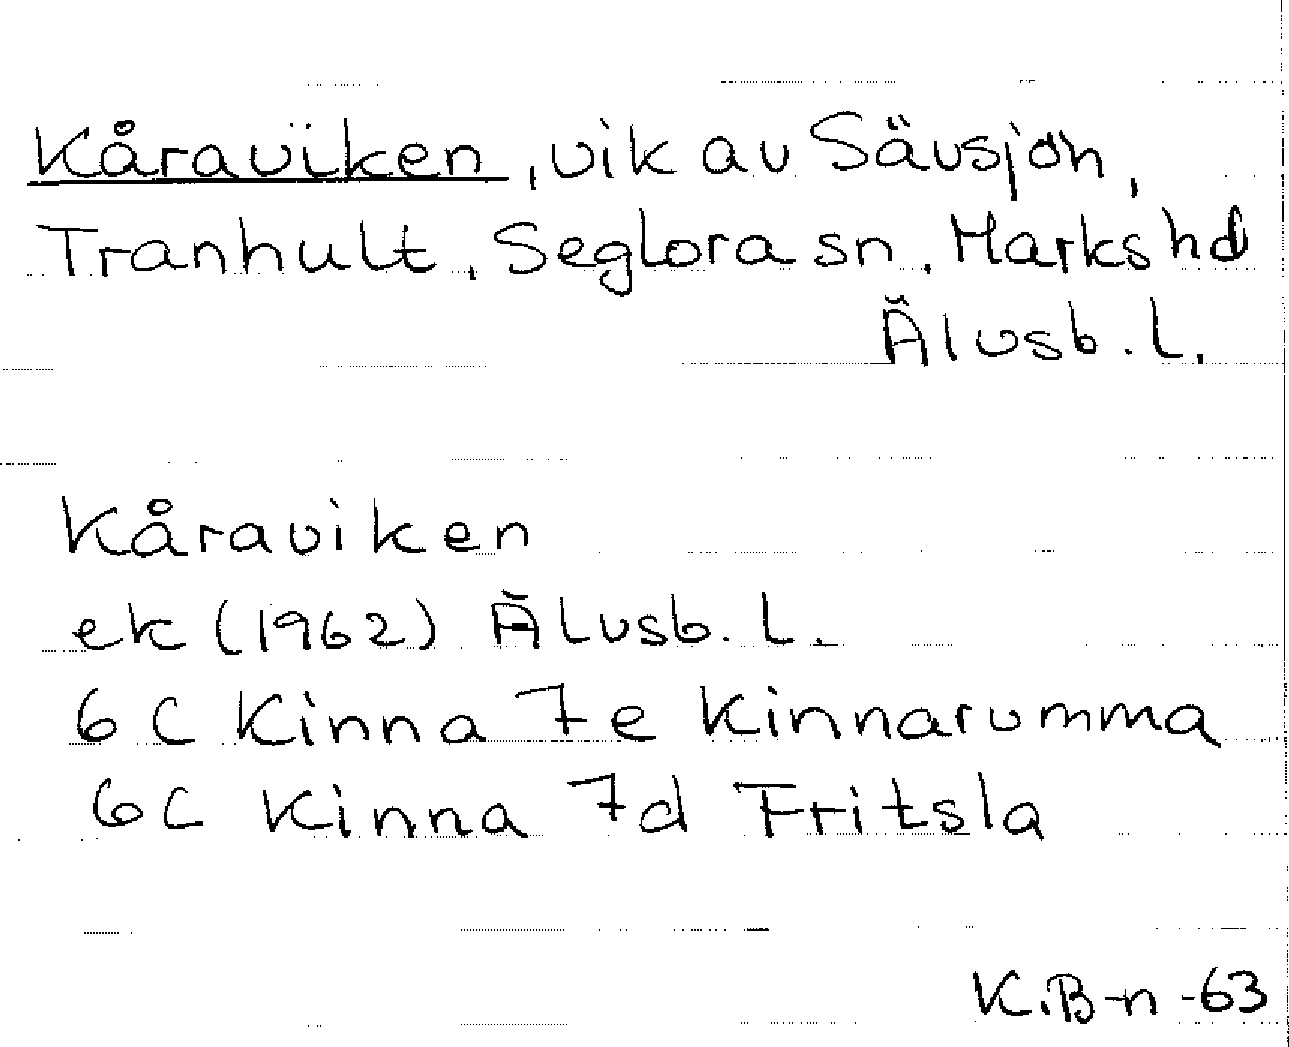 Kåraviken, vik av Sävsjön,
Tranhult, Seglora sn, Marks hd
Älvsb. l.
Kåraviken
ek (1962) Älvsb. l.
6 C Kinna 7e Kinnarumma
6C Kinna 7d Fritsla
K.B-n -63